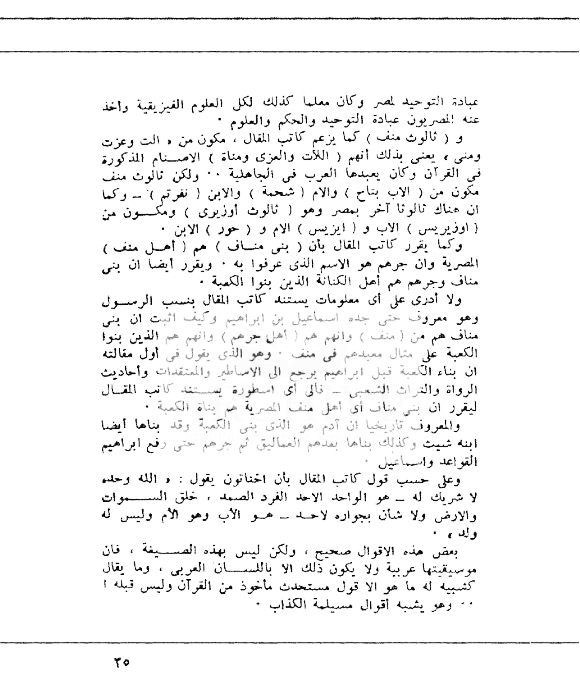 عبادة التوحيد لمصر وكان معلما كذلك لكل العلوم الفيزيقية وأخذ
عنه المصريون عبادة التوحيد والحكم والعلوم .
و ( ثالوث منف ) كما يزعم كاتب المقال ، مكون من « الت وعزت
ومنى » يعنى بذلك أنهم ( اللات والعزى ومناة ) الاصنام المذكورة
فى القرآن وكان يعبدها العرب فى الجاهلية .. ولكن ثالوث منف
مكون من ( الاب بتاح ) والام ( شحمة ) والابن ( نفرتم ) ـ وكما
ان هناك ثالوثا آخر بمصر وهو ( ثالوث أوزيرى ) ومكون من
( اوزيريس ) الاب و ( ايزيس ) الام و ( حور ) الابن .
وكما يقرر كاتب المقال بأن ( بنى مناف ) هم ( أهل منف )
المصرية وان جرهم هو الاسم الذى عرفوا به . ويقرر أيضا ان بنى
مناف وجرهم هم أهل الكنانة الذين بنوا الكعبة .
ولا أدرى على أى معلومات يستند كاتب المقال بنسب الرسول
وهو معروف حتى جده اسماعيل بن ابراهيم وكيف اثبت ان بنى
مناف هم من ( منف ) وانهم هم ( أهل جرهم ) وانهم هم الذين بنوا
الكعبة على مثال معبدهم فى منف . وهو الذى يقول فى أول مقالته
ان بناء الكعبة قبل ابراهيم يرجع الى الاساطير والمعتقدات وأحاديث
الرواة والتراث الشعبى ـ فالى أى اسطورة يستند كاتب المقال
ليقرر ان بنى مناف أى أهل منف المصرية هم بناة الكعبة .
والمعروف تاريخيا ان آدم هو الذى بنى الكعبة وقد بناها أيضا
ابنه شيث وكذلك بناها بعدهم العماليق ثم جرهم حتى رفع ابراهيم
القواعد واسماعيل .
وعلى حسب قول كاتب المقال بأن اخناتون يقول : « الله وحده
لا شريك له ـ هو الواحد الاحد الفرد الصمد ، خلق السموات
والارض ولا شأن بجواره لاحد ـ هو الأب وهو الأم وليس له
ولد » .
بعض هذه الاقوال صحيح ، ولكن ليس بهذه الصيغة ، فان
موسيقيتها عربية ولا يكون ذلك الا باللسان العربى ، وما يقال
كشبيه له ما هو الا قول مستحدث مأخوذ من القرآن وليس قبله !
.. وهو يشبه أقوال مسيلمة الكذاب .
٢٥